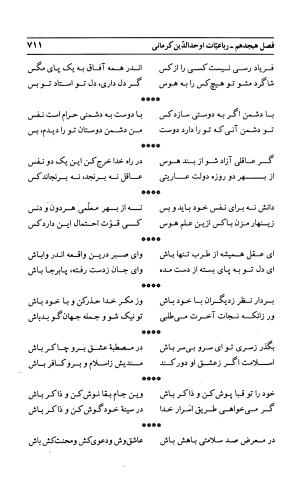 فصل هیجدهم ـ رباعیّات اوحدالدّین کرمانی ۷۱۱
فریاد رسی نیست کسی را از کس اندر همه آفاق به یک پای مگس
شاگرد مشو تو هیچ کس را به هوس گر دل داری، دل تو استاد تو بس
****
با دشمن اگر به دوستی سازد کس با دوست به دشمنی حرام است نفس
تو دشمن آنی که تو را دارد دوست من دشمن دوستان تو را دارم و بس
****
گر عاقلی آزاد شو از بند هوس در راه خدا خرج کن این یک دو نفس
از بهر دو روزه دولت عاریتی عاقل نه برنجد، نه برنجاند کس
****
دانش نه برای نفس خود باید و بس نه از بهر معلّمی هر دون و دنس
زینهار مزن با کس ازین علم هوس کی قوّت احتمال این دارد کس
****
ای عقل همیشه از طرب تنها باش وای صبر درین واقعه اندر وا باش
ای دل تو به پای بسته از دست مده وای جان زدست رفته، پابرجا باش
****
بردار نظر ز دیگران با خود باش وز مکر خدا حذر کن و با خود باش
ور زانکه نجات آخرت می‌طلبی تو نیک شو و جمله جهان گو بد باش
****
بگذر ز سری تو ای سرو بی‌سر باش در مصطبهٔ عشق برو چاکر باش
اسلامت اگر ز عشق او دور کند مندیش ز اسلام و برو کافر باش
****
خود را تو قبا پوش کن و ذاکر باش وین جام بقا نوش کن و ذاکر باش
گر می‌خواهی طریق اسرار خدا در سینهٔ خود گوش کن و ذاکر باش
****
در معرض صد سلامتی باهش باش عاشق‌وش و دعوی‌کش و محنت‌کش باش